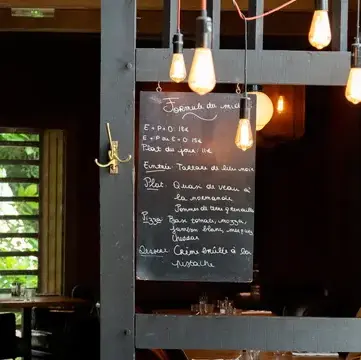 Formule du midi
E+P+D: 18€
E+P ou P+D: 15€
Plat du jour: 11€
Entrée: Tartare de lieu noir
Plat: Quasi de veau à
la normande
Pommes de terre grenailles
Pizza: Base tomate, mozza,
jambon blanc,
cheddar
Dessert: Crème brûlée à la
pistache